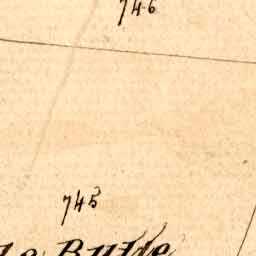 746
745
la Butte